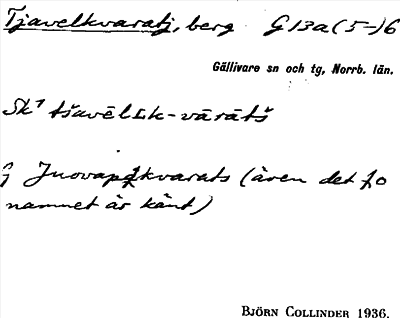 Tjavelkvaratj, berg G 13a (5-)6
Gällivare sn och tg, Norrb. län.
Sk⁷ tšavēlɪk-vārātš
(även det fo
namnet är känt)
BJÖRN COLLINDER 1936.